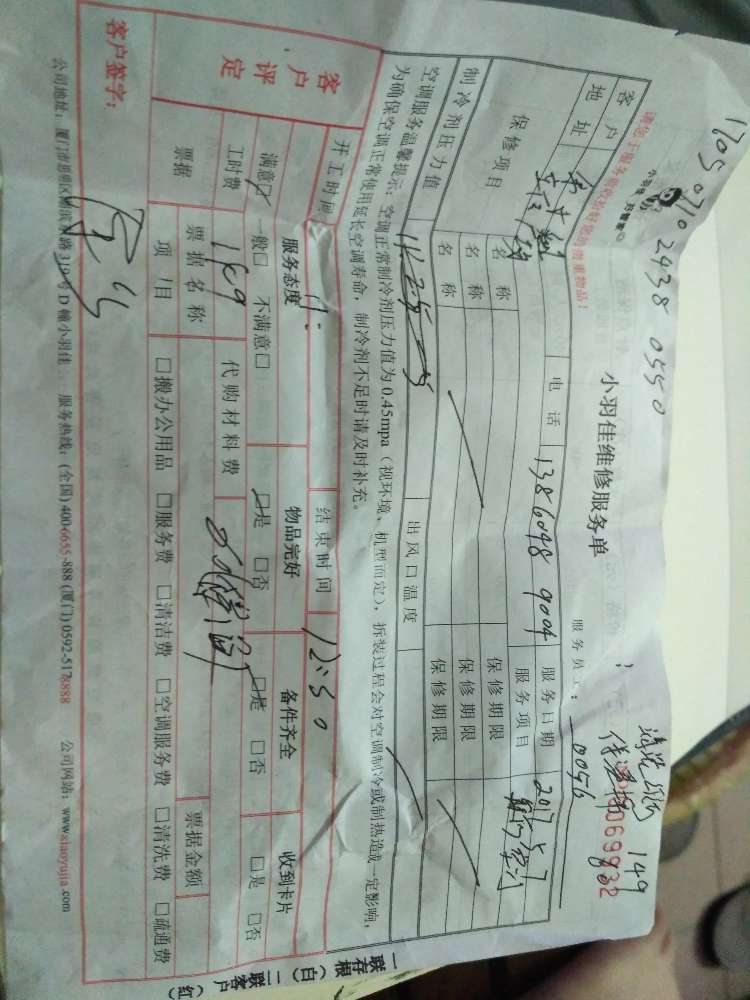 1705 0710 2938 0550
清洗 149
小羽佳维修服务单
请您于服务前收拾好您的贵重物品!
服务员工:
0056
客户
地址
电话
13860489004
服务日期
2017 5 7
保修项目
服务项目
名称
保修期限
名称
保修期限
名称
保修期限
制冷剂压力值
出风口温度
空调服务温馨提示:空调正常制冷剂压力值为0.45mpa(视环境、机型而定),拆装过程会对空调制冷或制热造成一定影响,
为确保空调正常使用延长空调寿命,制冷剂不足时请及时补充。
开工时间
11:
结束时间
12:30
客户评定
服务态度
物品完好
备件齐全
收到卡片
满意☑ 一般□ 不满意□
☑是 □否
☑是 □否
□是 □否
工时费
149
代购材料费
票据
票据名称
票据金额
项目
□搬办公用品 □服务费 □清洁费 □空调服务费 □清洗费 □疏通费
客户签字:
公司地址:厦门市思明区湖滨东路319号D幢小羽佳 服务热线:(全国)400-6655-888 (厦门)0592-5178888 公司网站:www.xiaoyujia.com
一联存根(白) 二联客户(红)